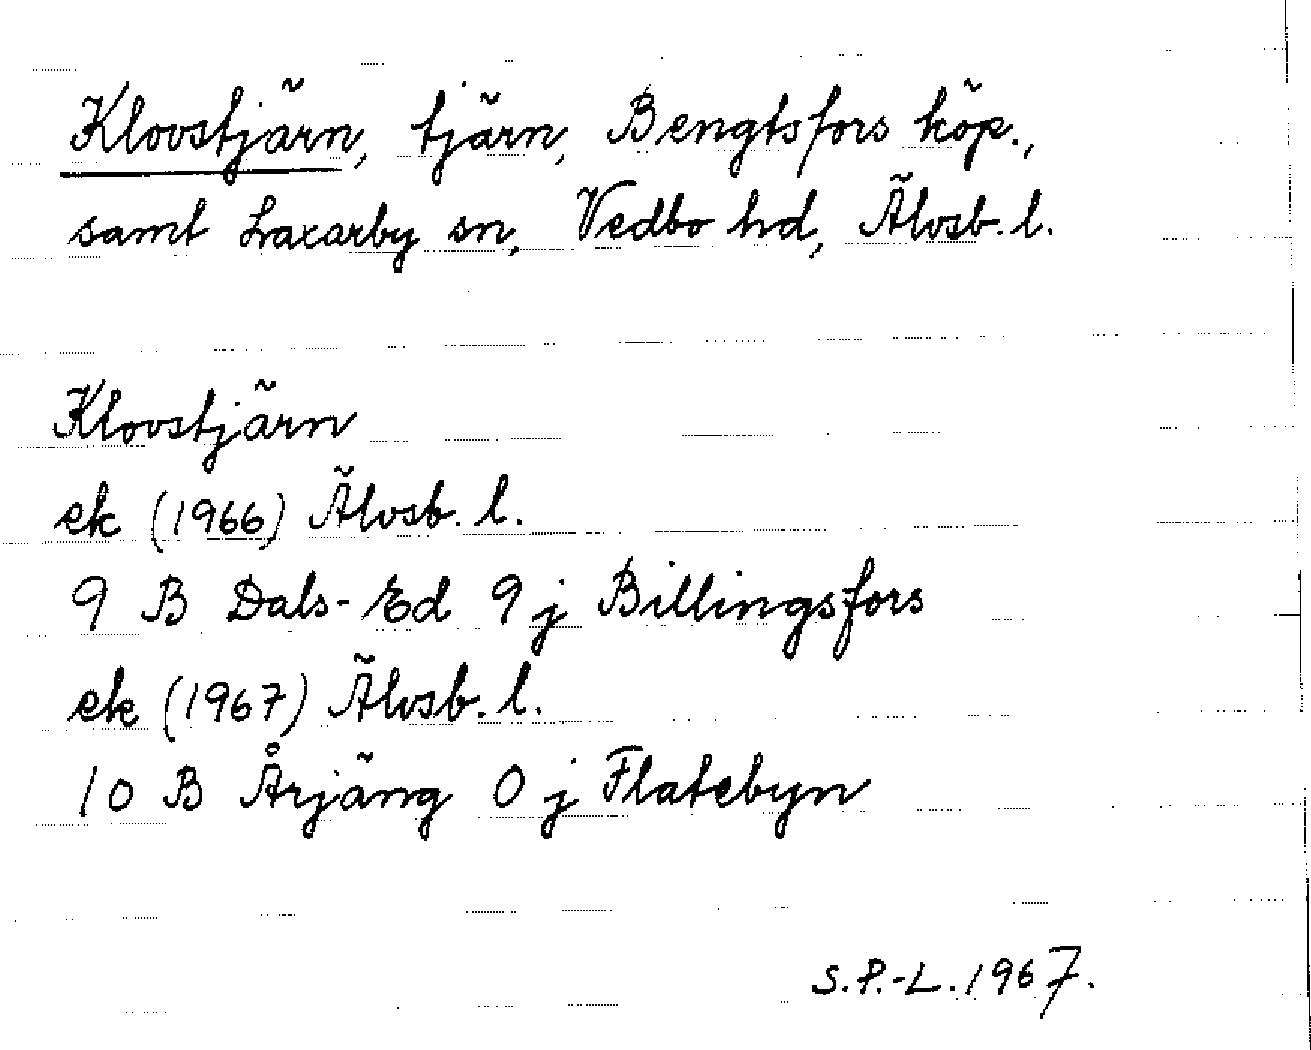 Klovstjärn, tjärn, Bengtsfors köp.,
samt Laxarby sn, Vedbo hd, Älvsb. l.
Klovstjärn
ek (1966) Älvsb. l.
9 B Dals-Ed 9 j Billingsfors
ek (1967) Älvsb. l.
10 B Årjäng 0 j Flatebyn
S.P.-L. 1967.